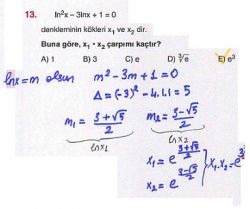 13. ln²x – 3lnx + 1 = 0
denkleminin kökleri x₁ ve x₂ dir.
Buna göre, x₁ · x₂ çarpımı kaçtır?
A) 1 B) 3 C) e D) ∛e E) e³
lnx = m olsun m² - 3m + 1 = 0
Δ = (-3)² - 4.1.1 = 5
m₁ = (3+√5)/2 m₂ = (3-√5)/2
lnx₁ lnx₂
x₁ = e^((3+√5)/2)
x₂ = e^((3-√5)/2) } x₁.x₂ = e³